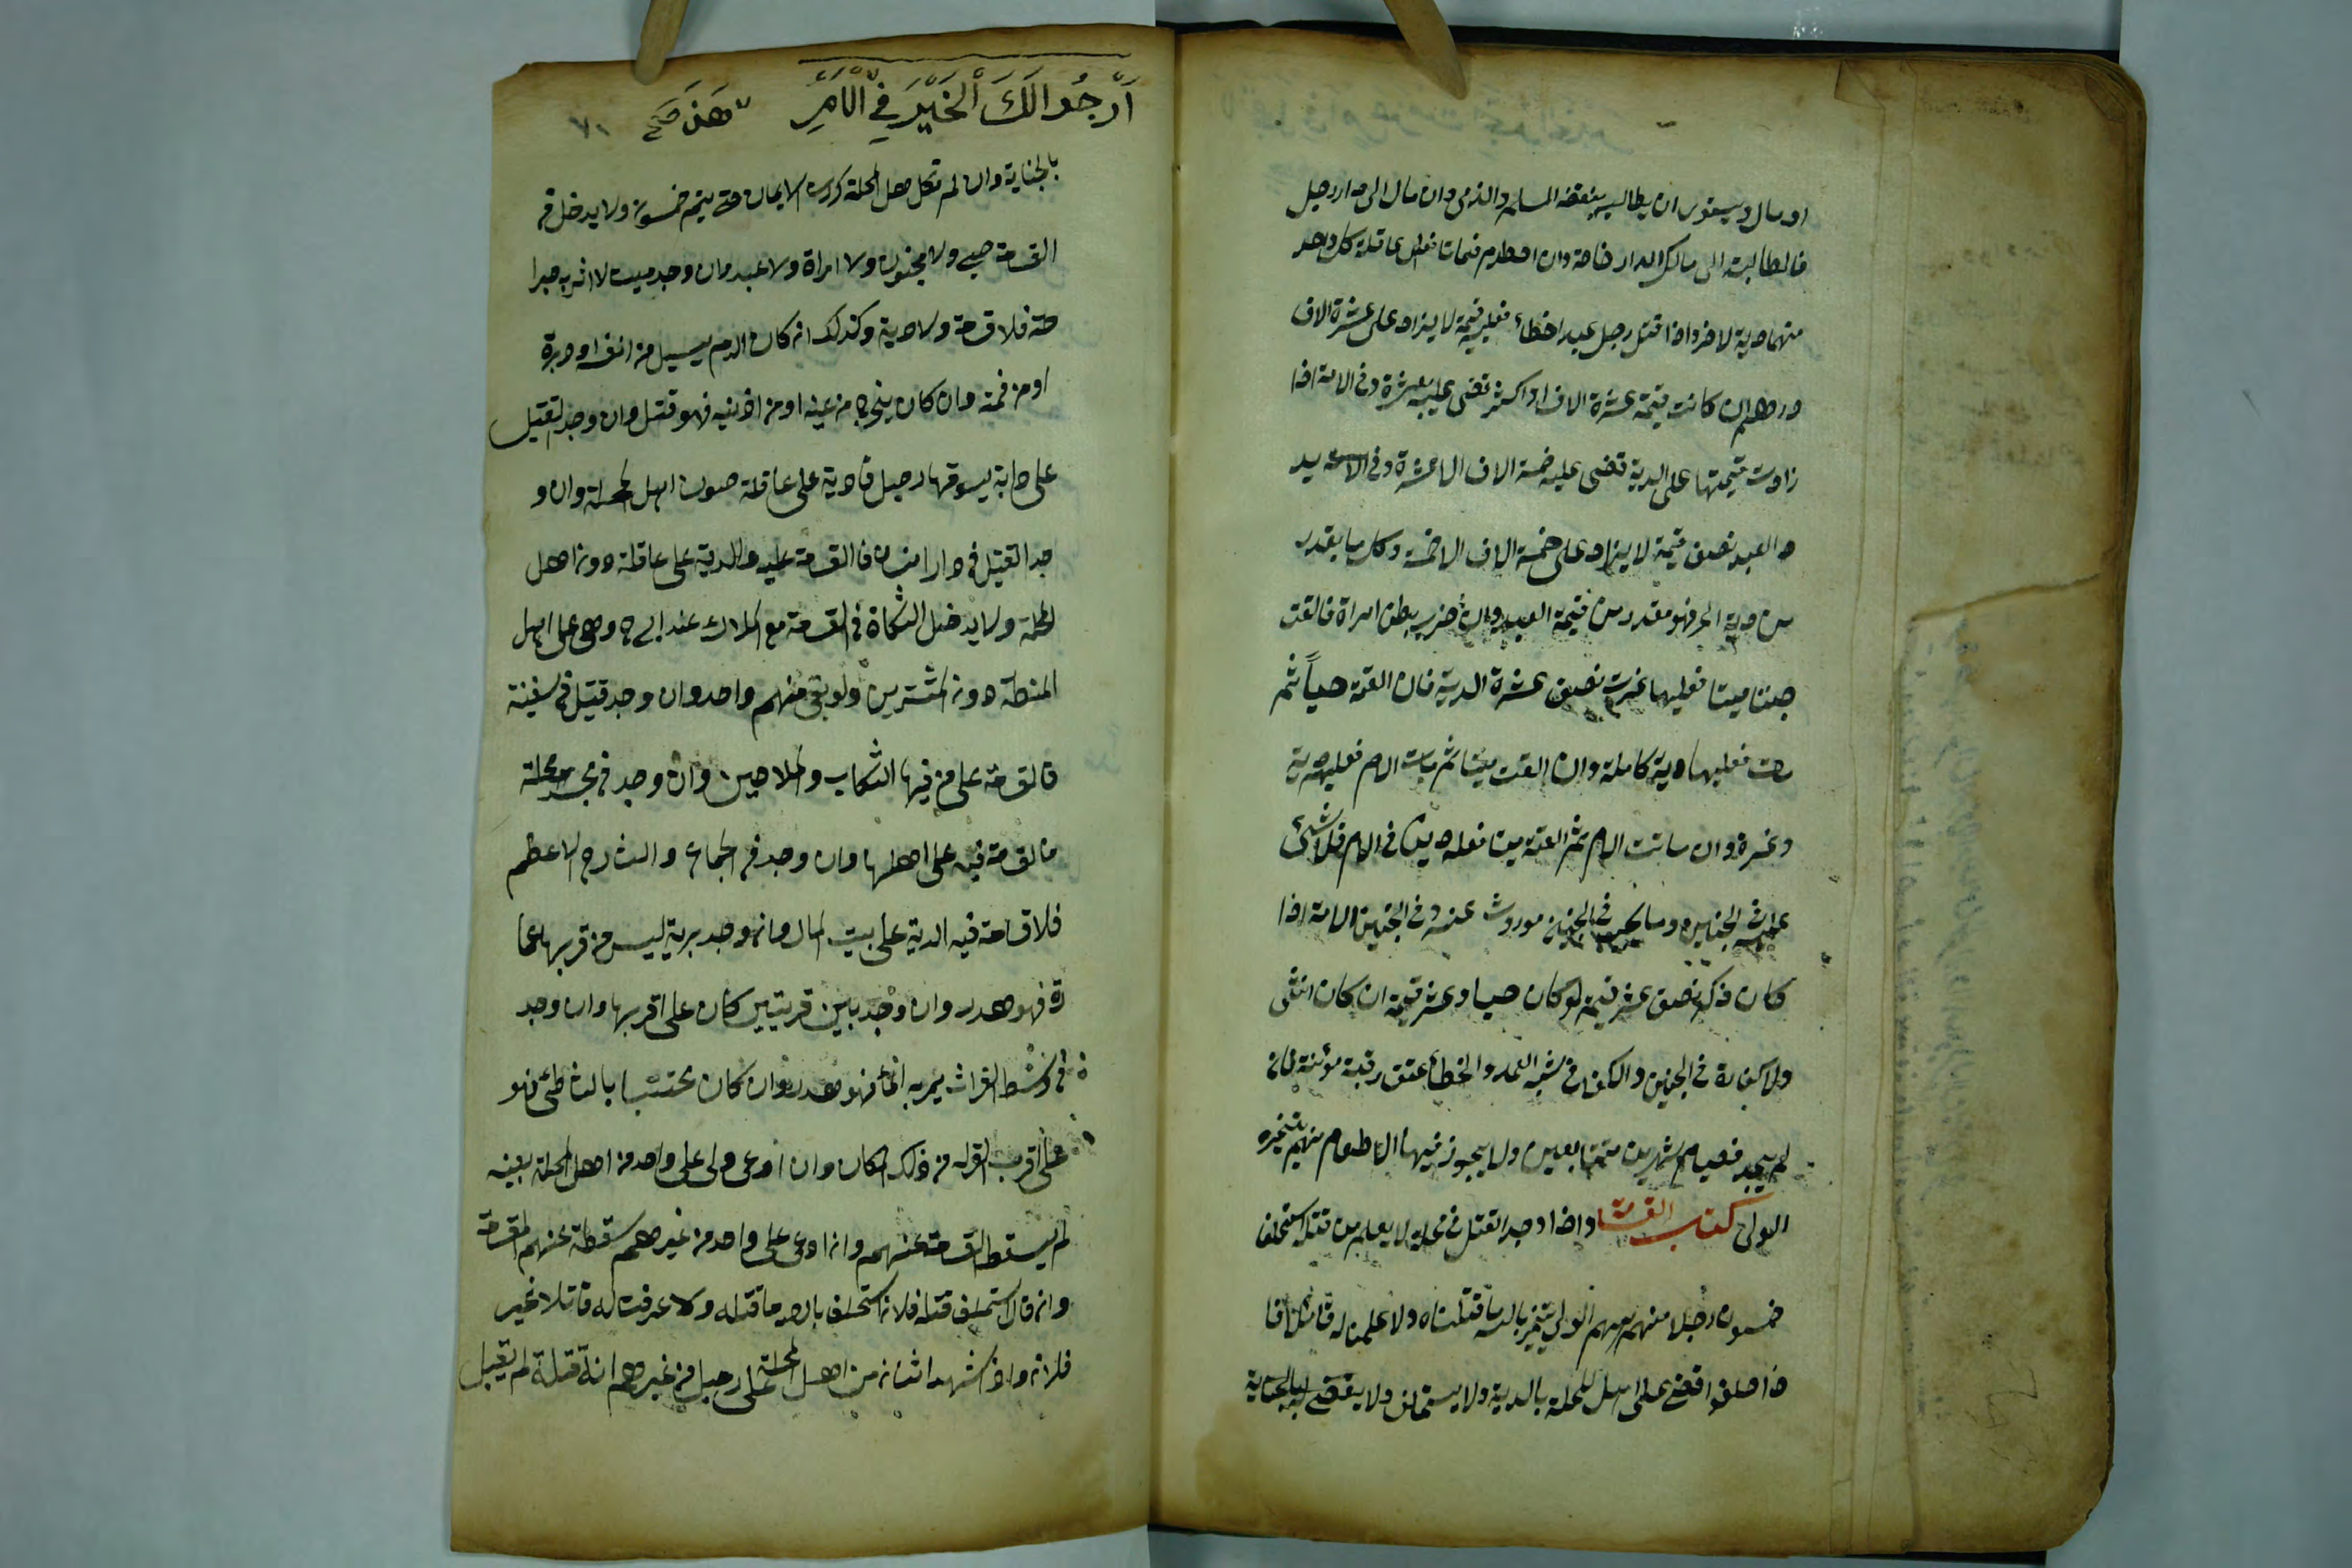 او مال ويستوى ان يطالبه بنقضه المسلم والذمى وان مال الى دار رجل
فالمطالبة الى مالك الدار خاصة وان اصطدم فماتا فعلى عاقلة كل واحد
منهما دية الاخر واذا قتل رجل عبدا خطاء فعليه قيمة لا يزاد على عشرة الاف
درهم ان كانت قيمة عشرة الاف او اكثر قضى عليه بعشرة وفى الامة اذا
زادت قيمتها على الدية قضى عليه خمسة الاف الا عشرة وفى
د العبد نصف قيمة لا يزاد على خمسة الاف الا خمسة وكل ما يقدر
من دية الحر فهو مقدر من قيمة العبد وان ضرب بطن امراة فالقت
جنينا ميتا فعليها غرة نصف عشرة الدية فان القته حيا ثم
مات فعليها دية كاملة وان القت ميتا ثم ماتت الام فعليه دية
وغرة وان ماتت الام ثم القته ميتا فعليه دية فى الام فلا شئ
عليه فى الجنين وما يجب فى الجنين موروث عنه وفى الجنين الامة اذا
كان ذكر نصف عشر قيمة لو كان حيا وعشر قيمة ان كان انثى
ولا كفارة فى الجنين والكفارة فى شبه العمد والخطأ عتق رقبة مؤمنة فان
لم يجد فصيام شهرين متتابعين ولا يجوز فيها الاطعام منهم يتخيره
الولى كتاب القسامة واذا وجد القتيل فى محلة لا يعلم من قتله استحلف
خمسون رجلا منهم الولى يتخير بالله ما قتلناه ولا علمنا له قاتلا فا
ذا حلفوا قضى على اهل المحلة بالدية ولا يستحلف ولا يقضى له بالجناية
ارجو لك الخير فى الامر
بالجناية وان لم تكمل اهل المحلة كررت الايمان حتى يتم خمسون ولا يدخل فى
القسامة صبى ولا مجنون ولا امراة ولا عبد وان وجد ميت لا اثر به جرا
حة فلا قسامة ولا دية وكذلك ان كان الدم يسيل من انفه او دبره
او من فمه وان كان يخرج من عينه او من اذنيه فهو قتيل وان وجد القتيل
على دابة يسوقها رجل فادية على عاقلة دون اهل المحلة وان و
جد القتيل فى دار انسان فالقسامة عليه والدية على عاقلة دون اهل
المحلة ولا يدخل السكاة فى القسامة مع الملاك عند ابى ح وهى على اهل
الخطة دون المشترين ولو بقى منهم واحد وان وجد قتيل فى سفينة
فالقسامة على من فيها الركاب والملاحين وان وجد فى مسجد محلة
فالقسامة فيه على اهلها وان وجد فى الجامع والشارع الاعظم
فلا قسامة فيه الدية على بيت المال وان وجد برية ليس من قربها عما
رة فهو هدر وان وجد بين قريتين كان على اقربها وان وجد
فى وسط الفرات يمر به الماء فهو هدر وان كان محتبسا بالشاطئ فهو
على اقرب القرية من ذلك المكان وان ادعى ولى على واحد من اهل المحلة بعينه
لم يسقط القسامة عنهم وان ادعى على واحد من غيرهم سقطة عنهم القسامة
وان قال استحلف قتله فلان استحلف بالله ما قتله ولا عرفت له قاتلا غير
فلان واذا شهد اثنان من اهل المحلة على رجل من غيرهم انه قتلة لم يقبل